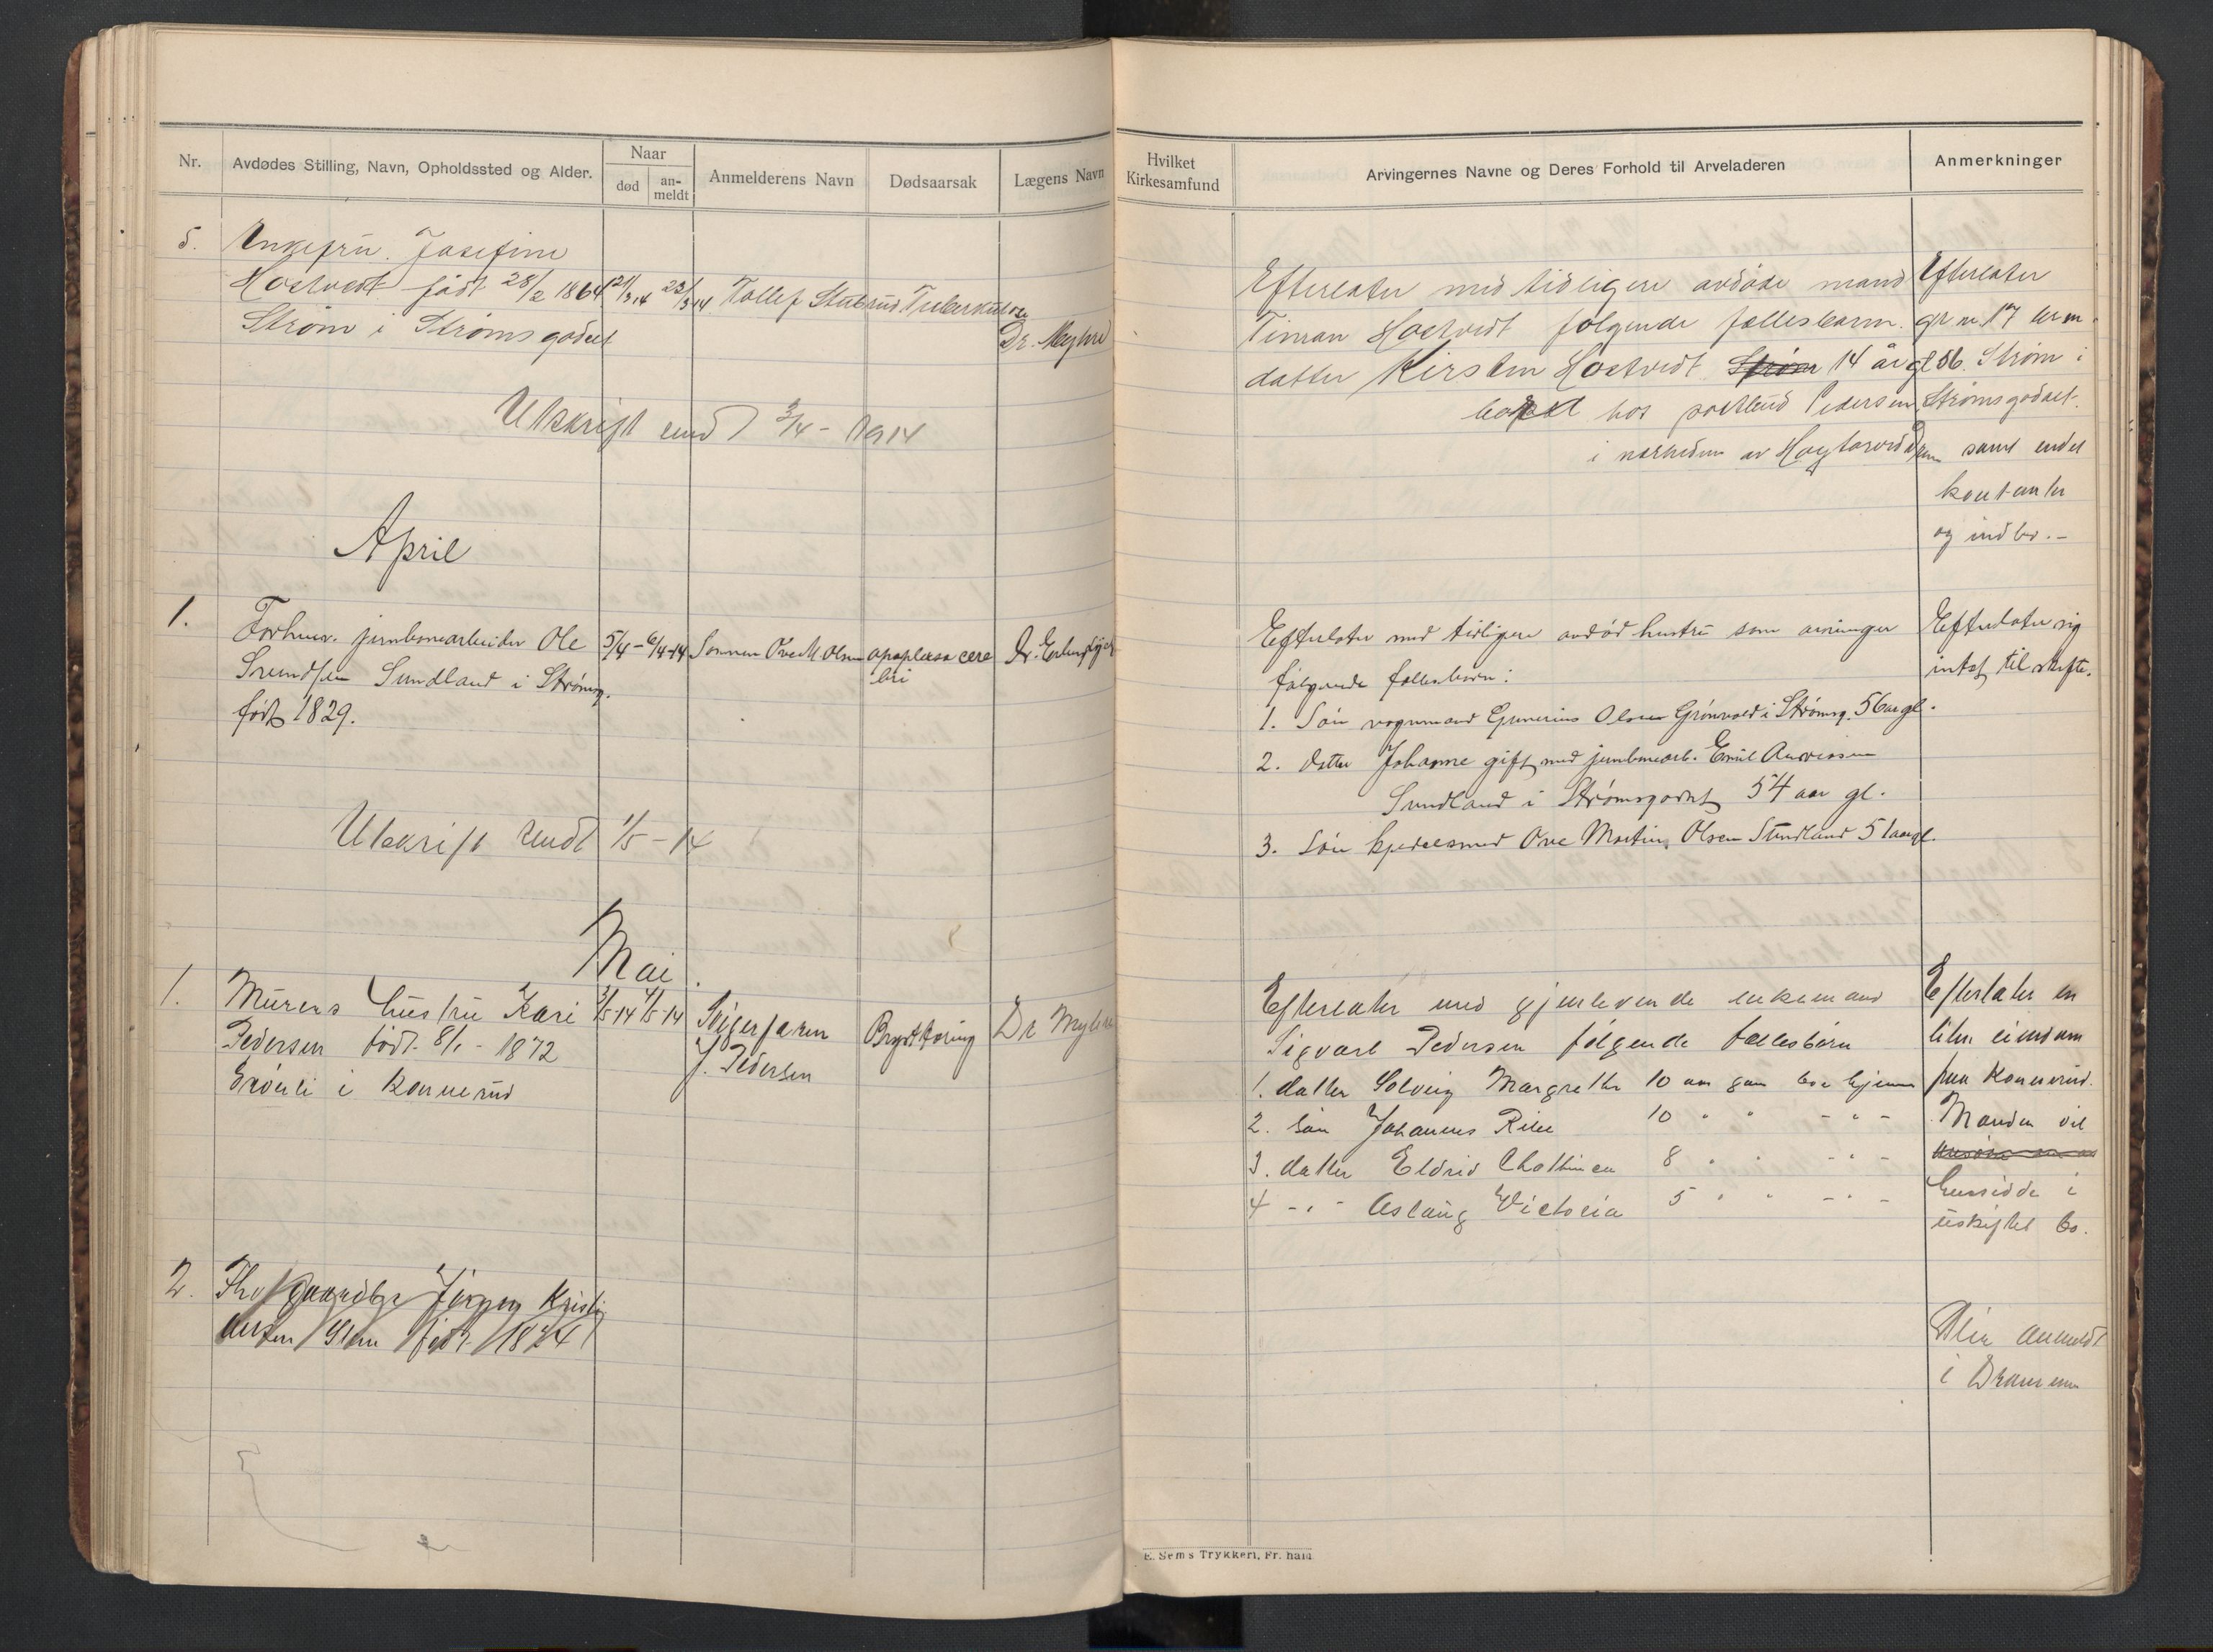 Nr.
Avdødes Stilling, Navn, Opholdssted og Alder.
Naar
død
an-
meldt
Anmelderens Navn
Dødsaarsak
Lægens Navn
5. Enkefru. Josefine
Hostvedt født 28/2 1864 21/3 14 23/3 14 Tollef Stubrud Tuberkulose
Strøm i Strømsgodset
Dr. Myhre
Utskrift send 3/4 - 1914
April
1. Forhenv. jernbanearbeider Ole 5/4 - 6/4-14 Sønnen Ove M. Olsen apopleksia cere
Svendsen Sundland i Strømsg. bri
født 1829.
Utskrift sendt 1/5 - 14
Mai.
1. Murers hustru Kari 3/5-14 4/5-14 Svigerfaren Brysttæring Dr Myhre
Pedersen født 8/1 - 1872 J. Pedersen
i Konnerud
2. Fhv. Gaardbr Jørgen Kristi
ansen født 1824
Hvilket
Kirkesamfund
Arvingernes Navne og Deres Forhold til Arveladeren
Anmerkninger
Efterlater med tidligere avdøde mand
Timan Hostvedt følgende fællesbarn.
datter Kirsten Hostvedt Strøm 14 år gl
bopæl hos postbud Pedersen
i nærheden av
Efterlater
gr. nr. 17 br nr.
56. Strøm i
Strømsgodset.
samt endel
kontanter
og indbo. -
Efterlater med tidligere avdød hustru som arvinger
følgende fællesbørn:
1. Søn vognmand Gunerius Olsen Grønvold i Strømsg. 56 aar gl.
2. datter Johanne gift med jernbanearb. Emil Andreassen
Sundland i Strømsgodset 54 aar gl.
3. Søn kjedelsmed Ove Martin Olsen Sundland 51 aar gl.
Efterlater sig
intet til skifte.
Efterlater med gjenlevende enkemand
Sigvart Pedersen følgende fællesbørn
1. datter Solveig Margrethe 10 aar gam bor hjemme
2. søn Johannes 10 " " - " -
3. datter Eldrid 8 " " - " -
4 - " - Aslaug Victoria 5 " " - " -
Efterlater en
liten eiendom
paa Konnerud.
Manden vil
hensidde i
uskiftet bo.
Blir anmeldt
i Drammen
E. Sem's Trykkeri, Fr.hald